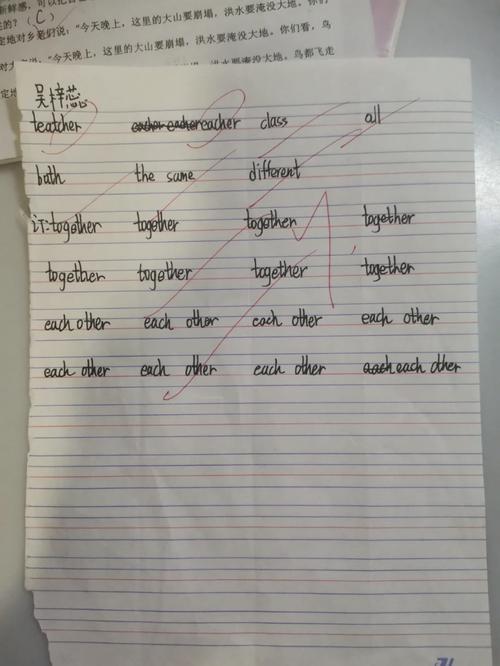 新鲜感,可以把自
的?(C)
定地对乡亲们说:“今天晚上,这里的大山要崩塌,洪水要淹没大地。你们
说:“今天晚上,这里的大山要崩塌,洪水要淹没大地。你们看,鸟
洪水要淹没大地。鸟都飞走
吴梓芯
teatcher eacher eachereacher class all
bath the same different
订:together together together together
together together together together
each other each other each other each other
each other each other each other each each other